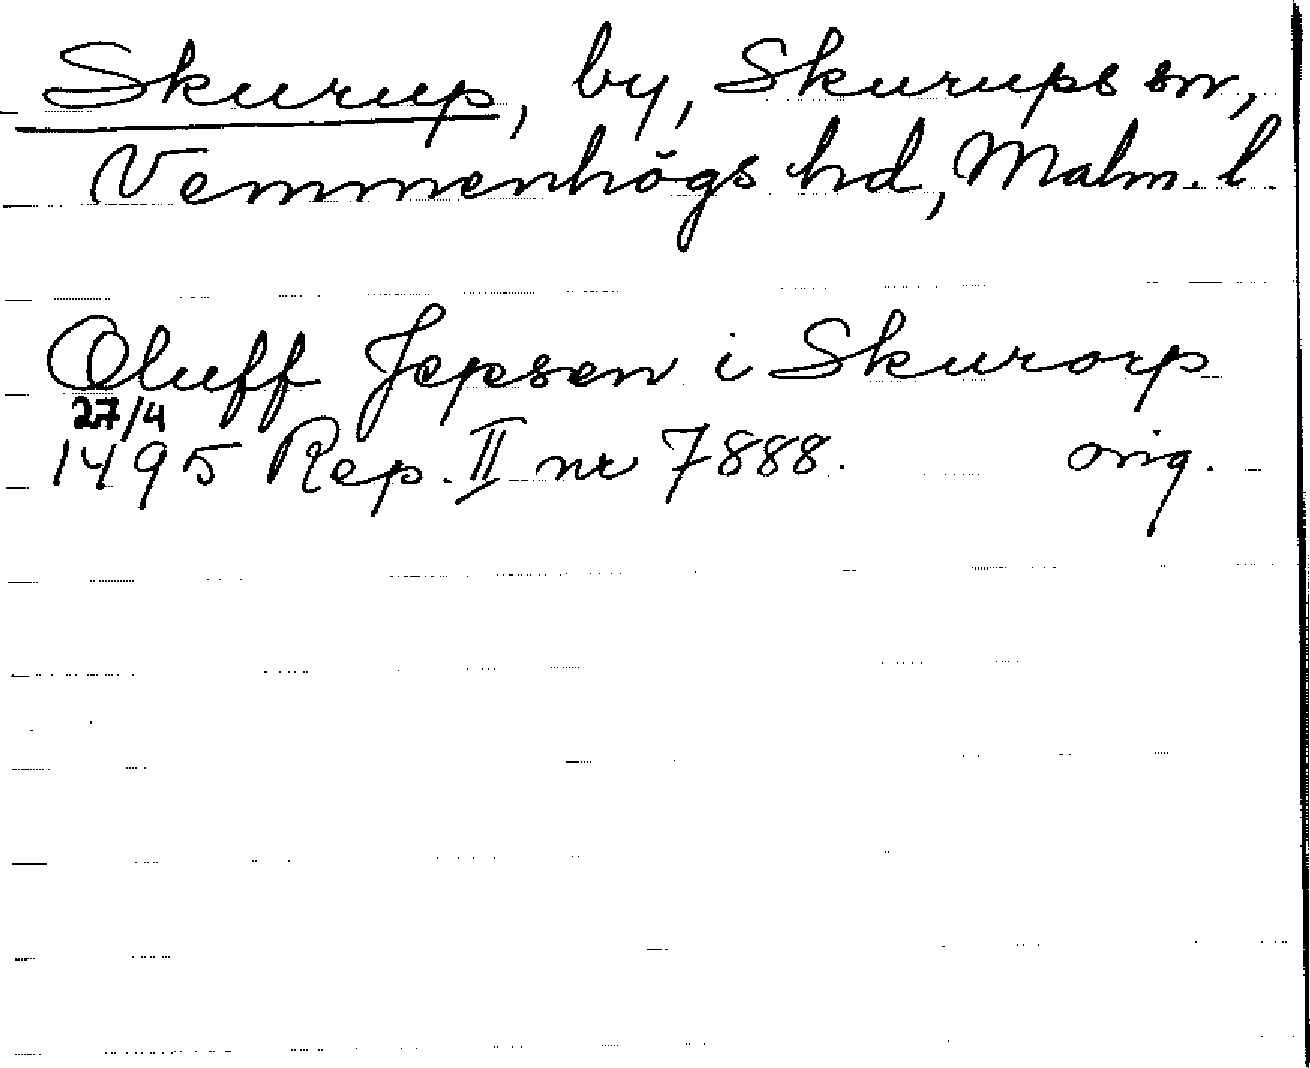 Skurup, by, Skurups sn,
Vemmenhögs hd, Malm. l
Oluff Jepsen i Skurorp
27/4
1495 Rep. II nr 7888. orig.